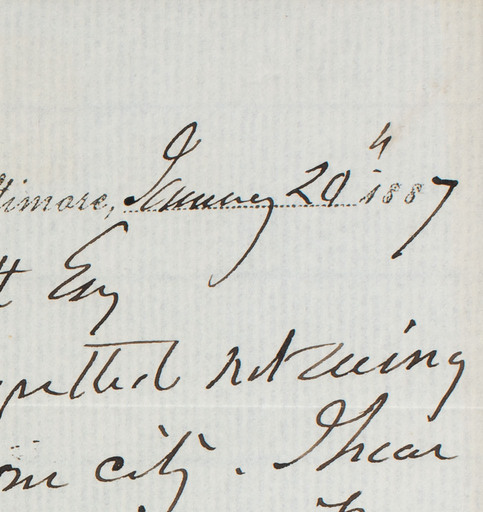 timore, January 20th 1887
tt Esq
gretted not seeing
our city. I hear